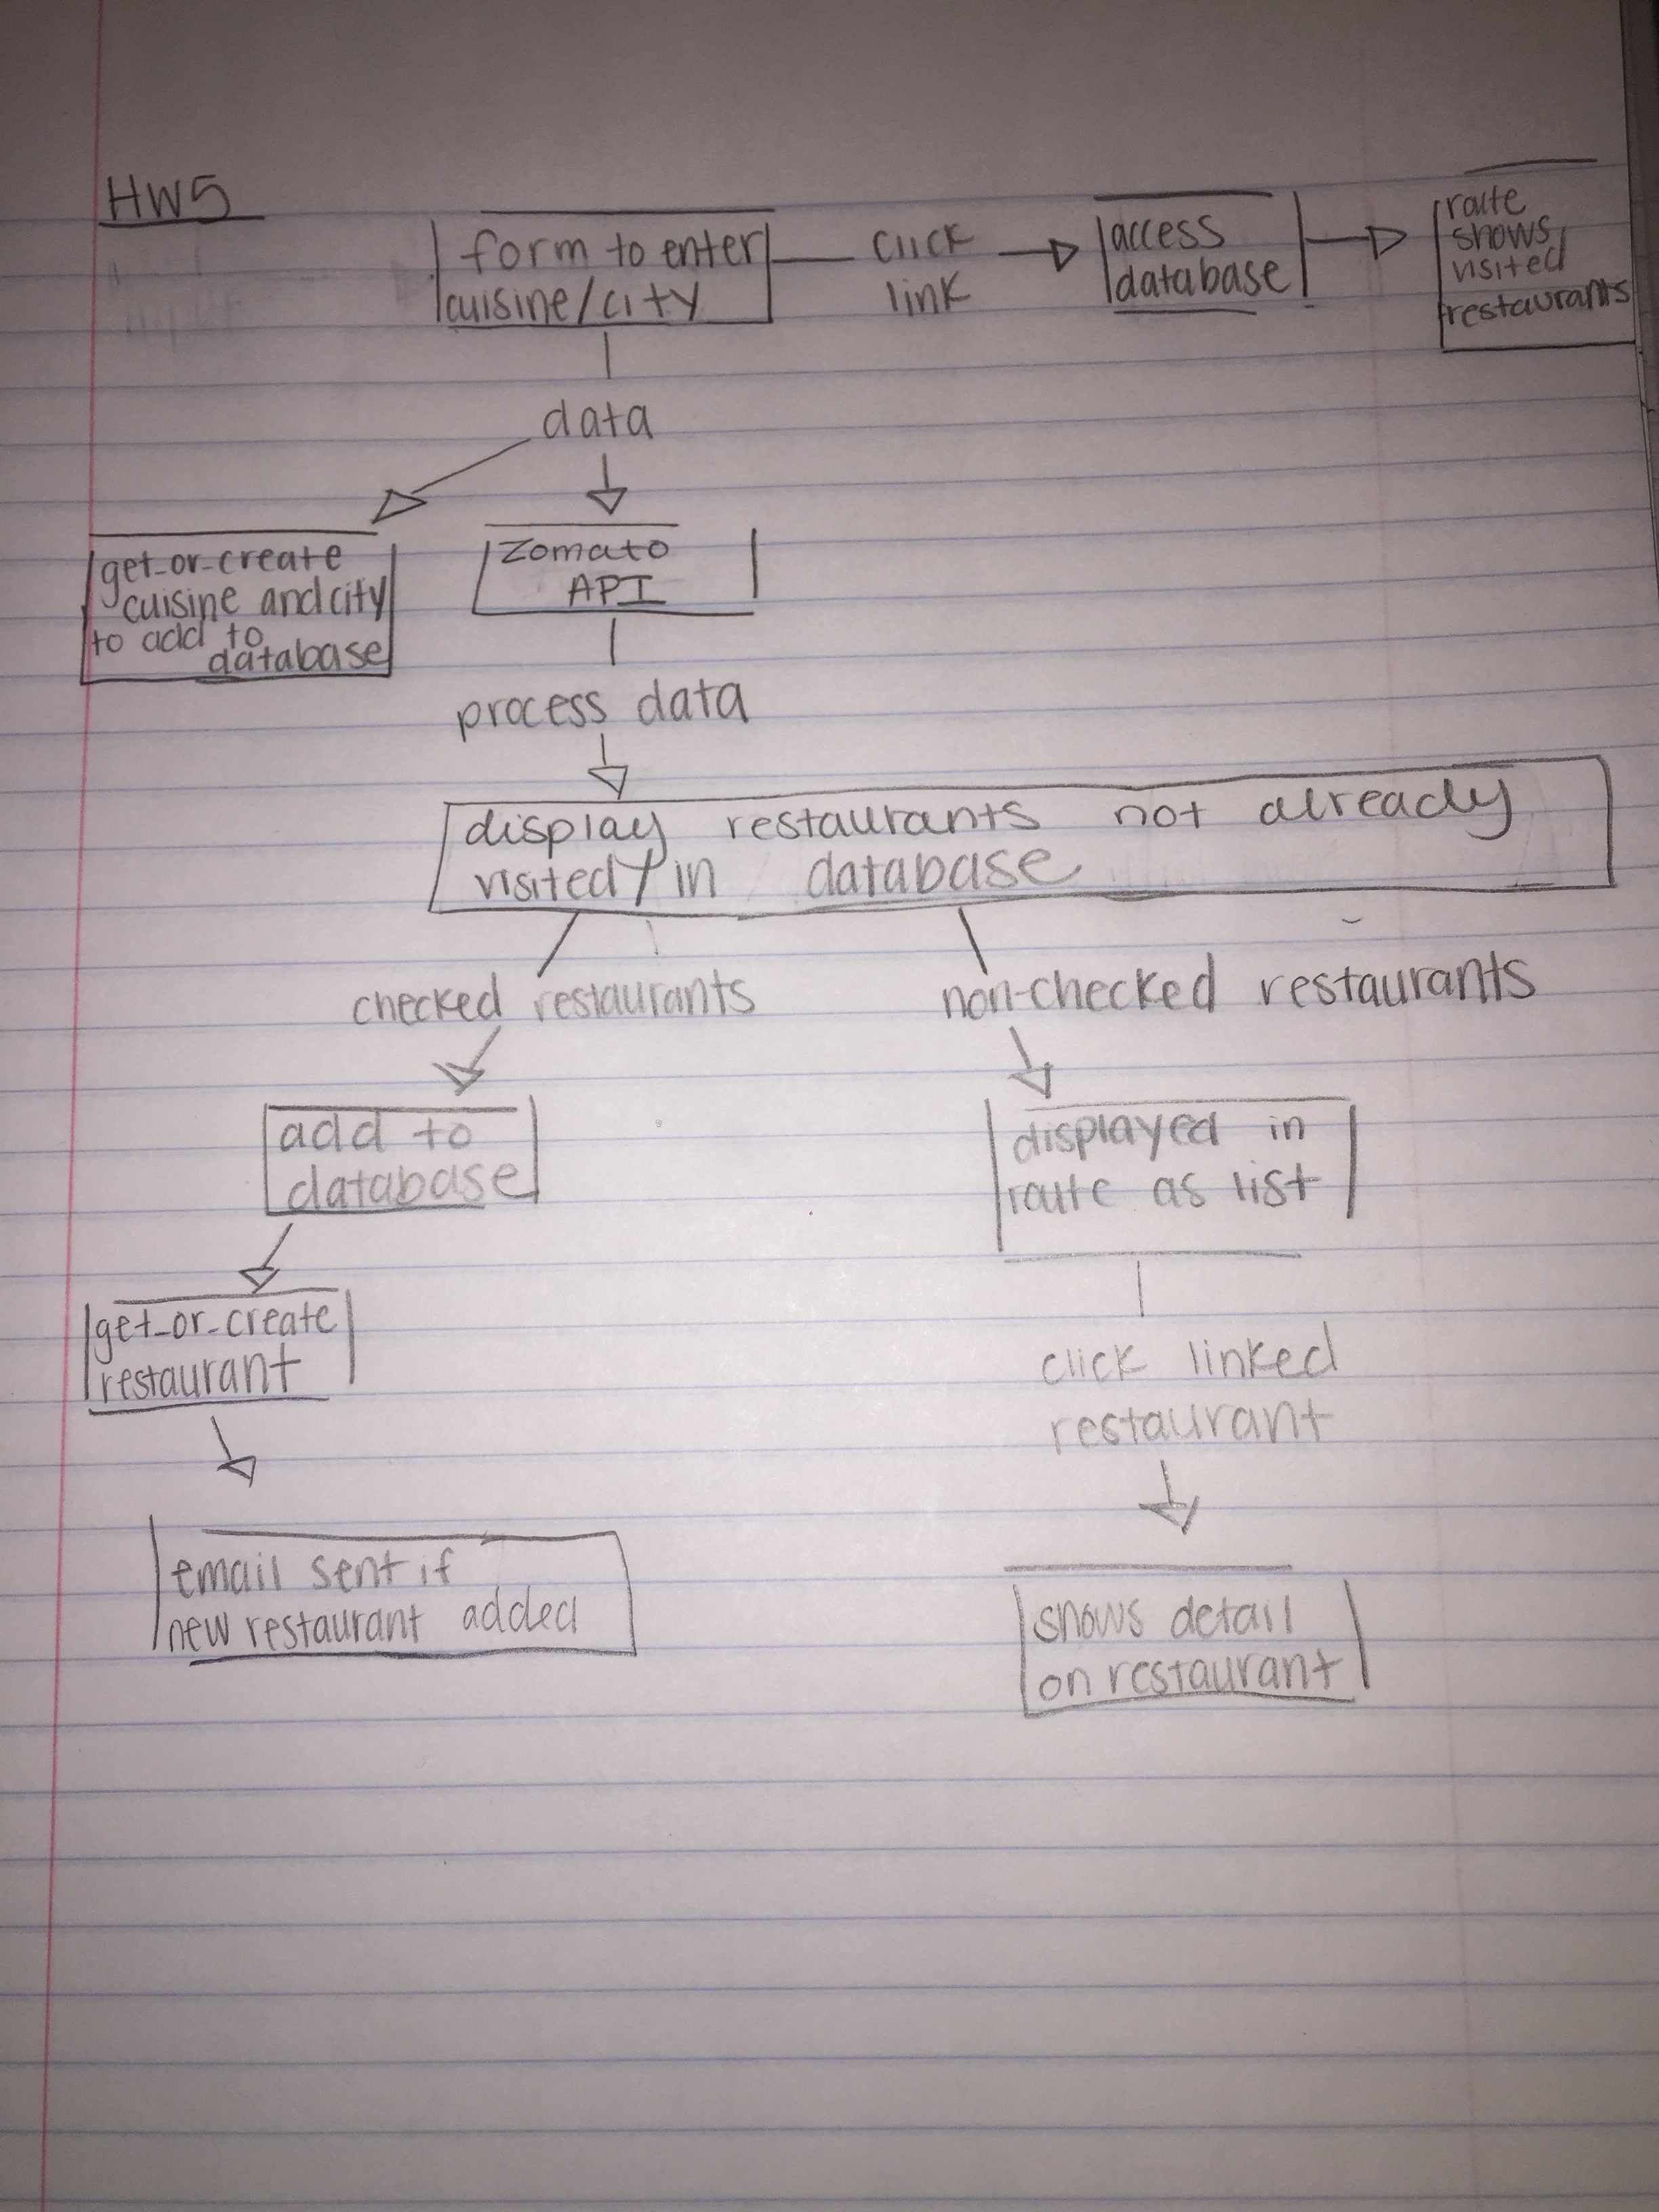 HW5
form to enter
cuisine/city
click
link
access
database
route
shows
visited
restaurants
data
get_or_create
cuisine and city
to add to
database
Zomato
API
process data
display restaurants not already
visited/in database
checked restaurants
non-checked restaurants
add to
database
displayed in
route as list
get_or_create
restaurant
click linked
restaurant
email sent if
new restaurant added
shows detail
on restaurant